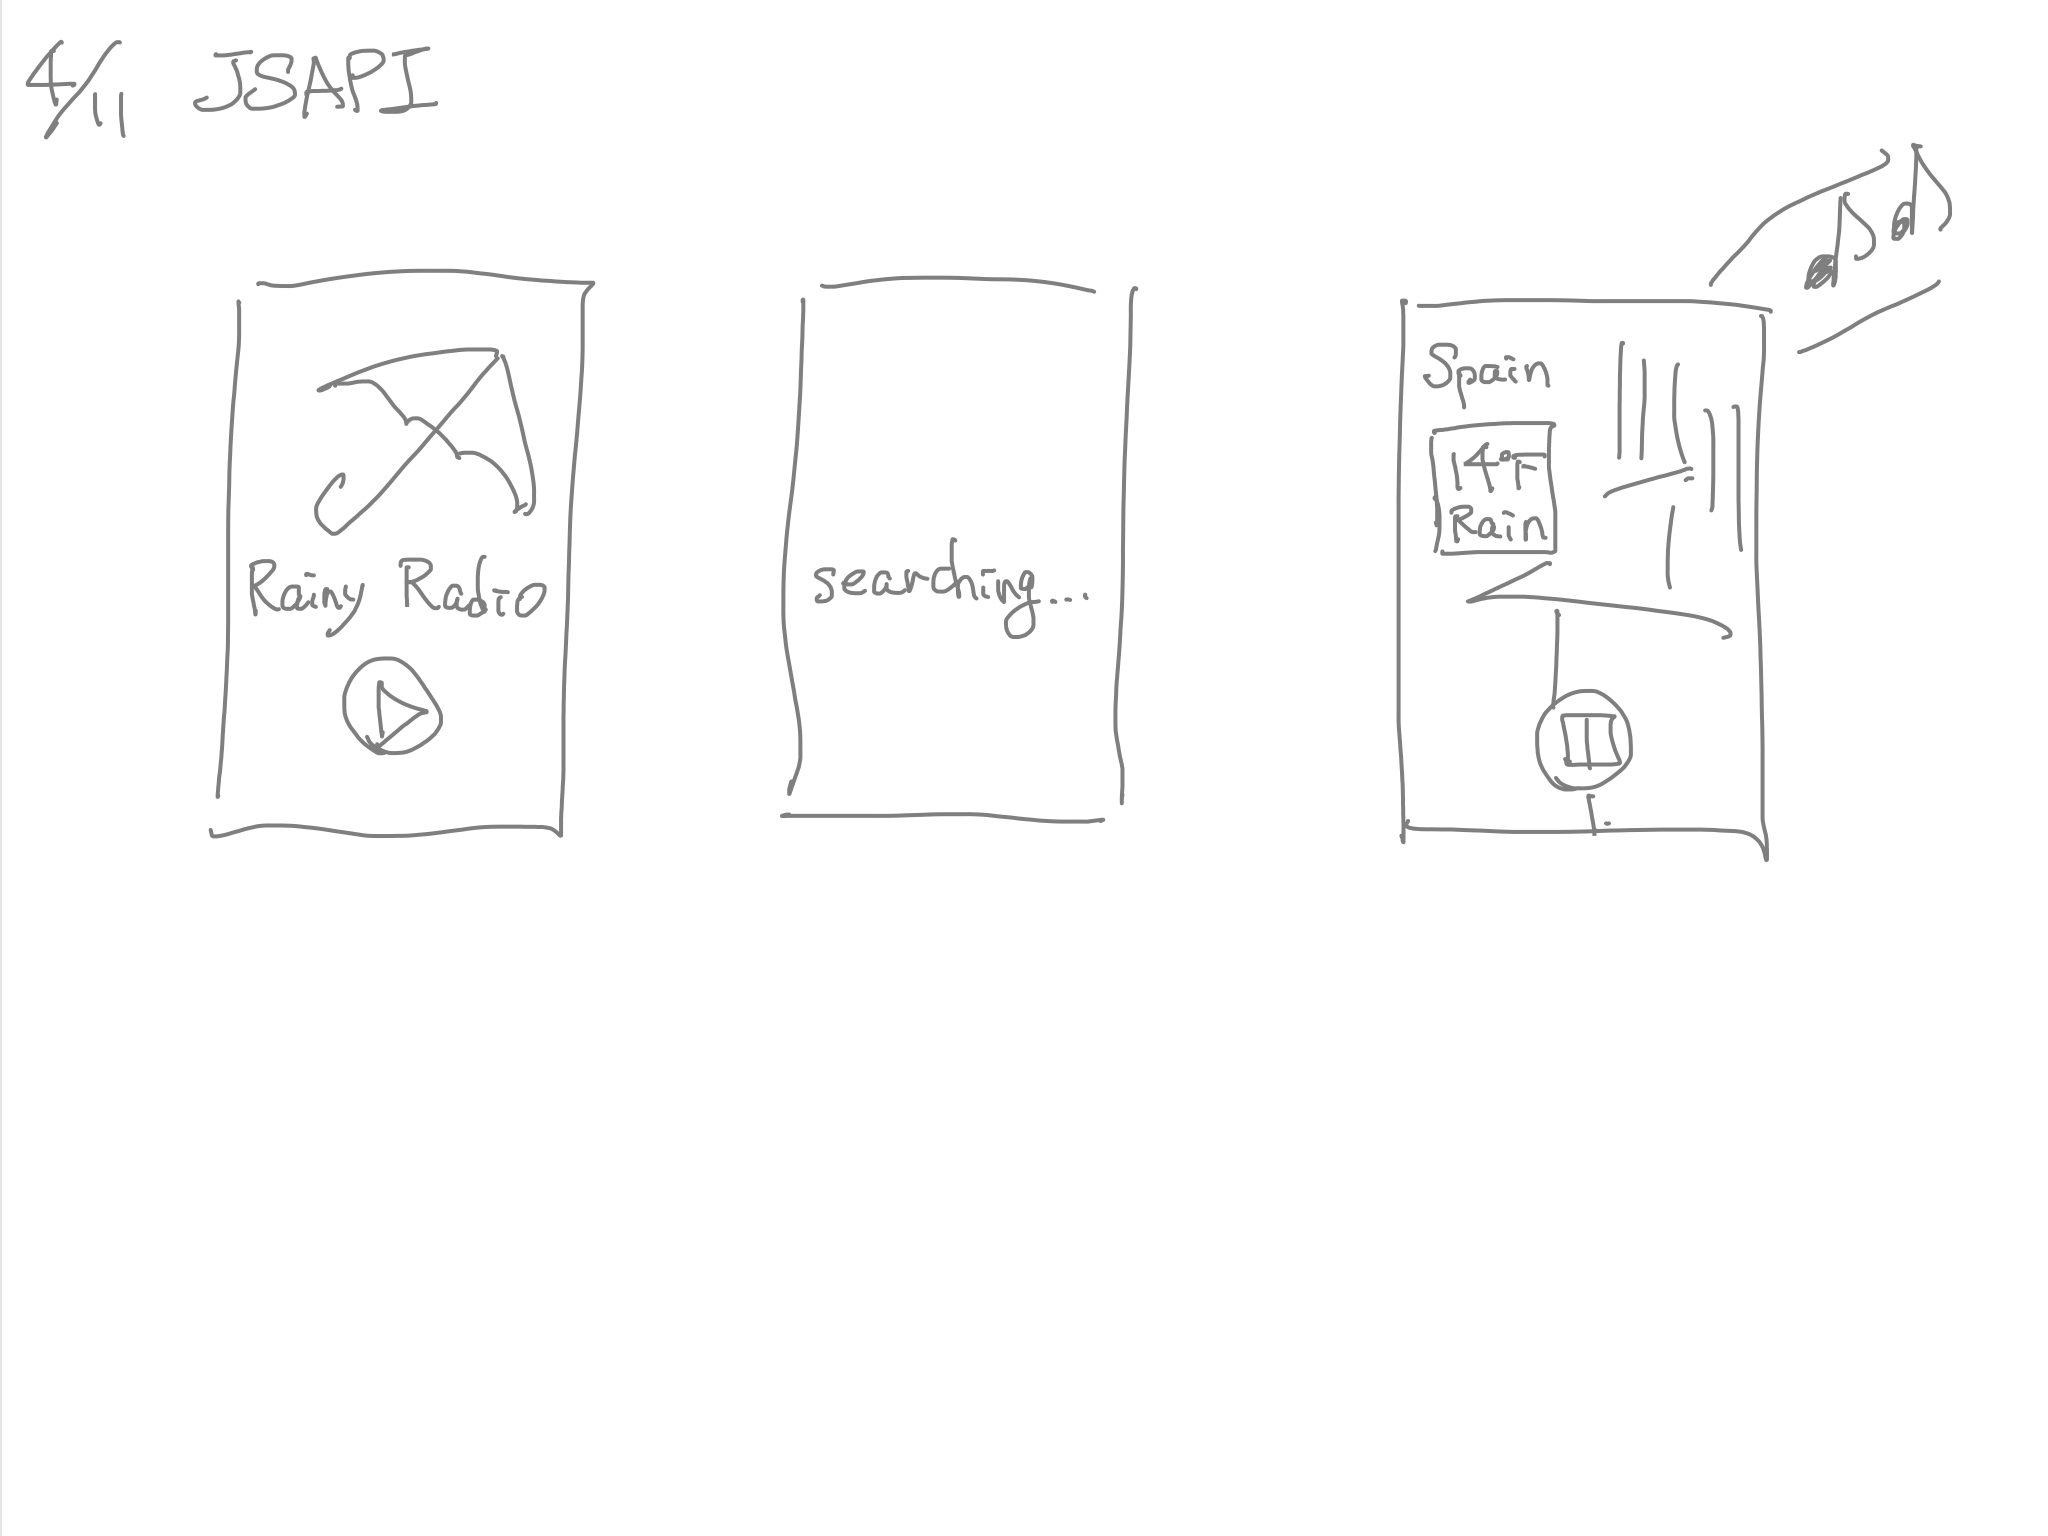 4/11 JSAPI
Rainy Radio
searching...
Spain
14°F
Rain